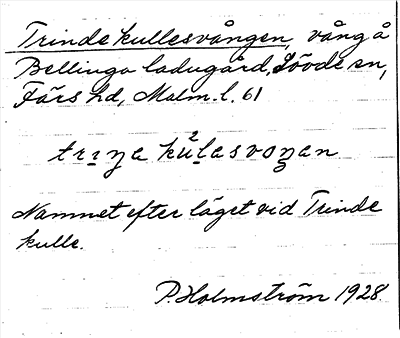 Trindekullesvången, vång å
Bellinga ladugård, Sövde sn,
Färs hd, Malm. l. 61
trıŋe ku²lasvoŋan
Namnet efter läget vid Trinde
kulle.
P. Holmström 1928.